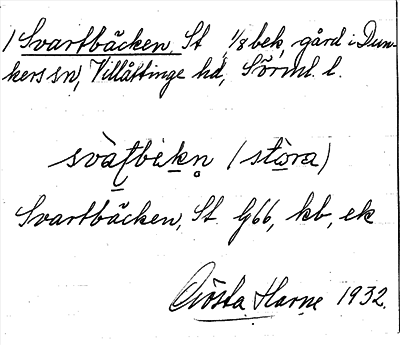 1 Svartbäcken, St, 1/8 bek, gård i Dun-
kers sn, Villåttinge hd, Sörml. l.
svàṭbekn̥ (stòra)
Svartbäcken, St. G66, kb, ek
Gösta Harne 1932.